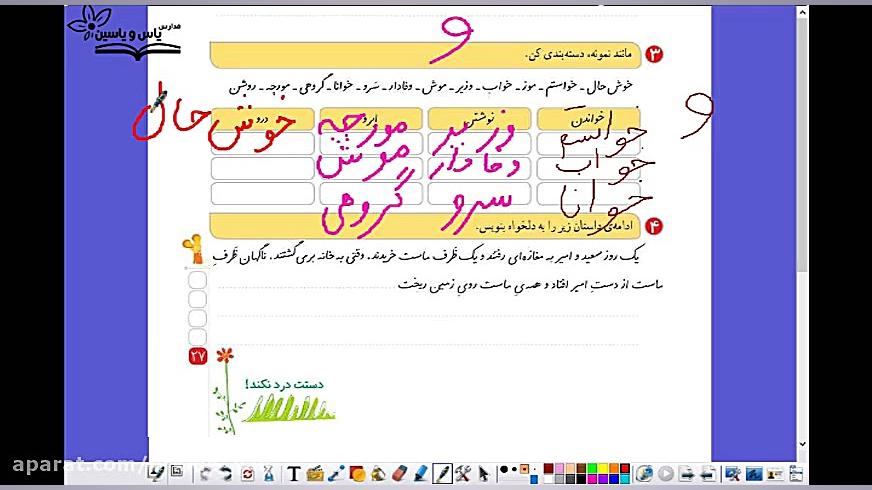 مدارس
یاس و یاسین
و
۳ مانند نمونه، دسته‌بندی کن.
خوش حال - خواستم - موز - خواب - وزیر - موش - وفادار - سَرو - خوانا - گروهی - مورچه - روشن
و
خواندن نوشتن ابرو درو
خواستم وزیر مورچه خوش حال
خواب وفادار موش
خوانا سرو گروهی
۴ ادامه‌ی داستان زیر را به دلخواه بنویس.
یک روز سعید و امیر به مغازه‌ای رفتند و یک ظَرف ماست خریدند. وقتی به خانه برمی‌گشتند، ناگهان ظَرفِ
ماست از دستِ امیر افتاد و همه‌یِ ماست رویِ زمین ریخت
۲۷
دستت درد نکند!
aparat.com/